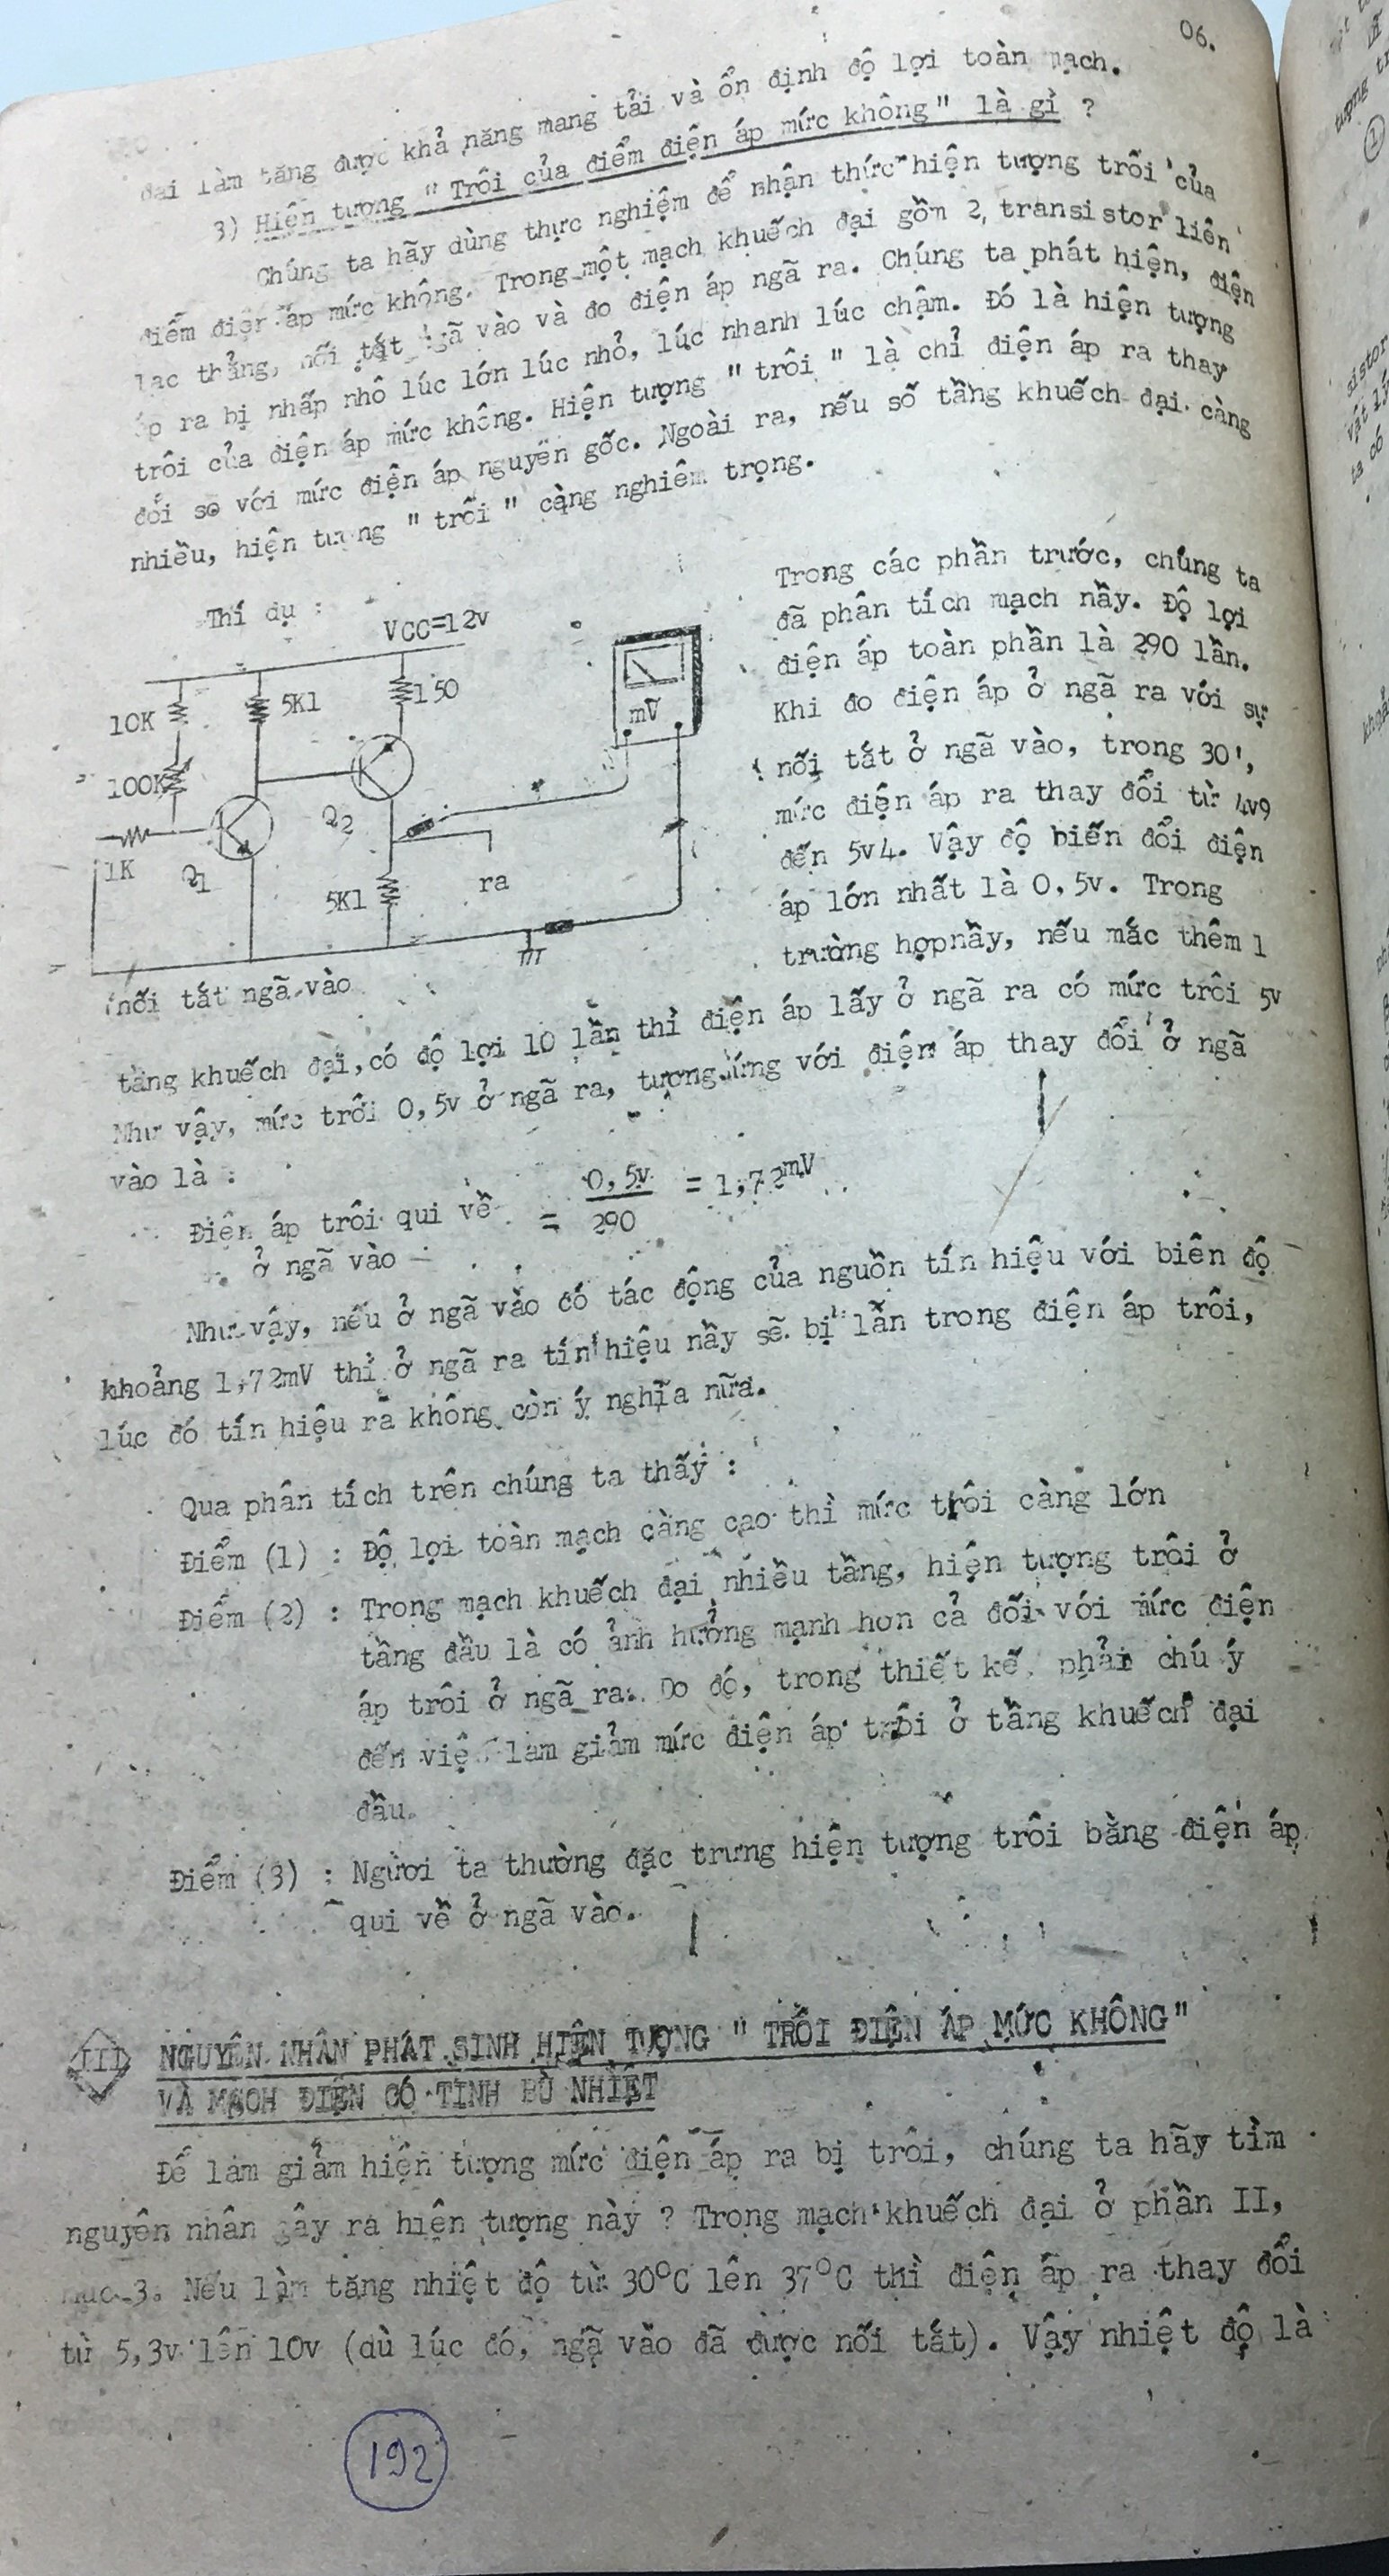 06.
đại làm tăng được khả năng mang tải và ổn định độ lợi toàn mạch.
3) Hiện tượng " Trôi của điểm điện áp mức không" là gì ?
Chúng ta hãy dùng thực nghiệm để nhận thức hiện tượng trôi của
điểm điện áp mức không. Trong một mạch khuếch đại gồm 2 transistor liên
lạc thẳng, nối tắt ngã vào và đo điện áp ngã ra. Chúng ta phát hiện, điện
áp ra bị nhấp nhô lúc lớn lúc nhỏ, lúc nhanh lúc chậm. Đó là hiện tượng
trôi của điện áp mức không. Hiện tượng " trôi " là chỉ điện áp ra thay
đổi so với mức điện áp nguyên gốc. Ngoài ra, nếu số tầng khuếch đại càng
nhiều, hiện tượng " trôi " càng nghiêm trọng.
Thí dụ :
VCC=12v
10K
5K1
150
mV
100K
Q2
1K
Q1
5K1
ra
nối tắt ngã vào
Trong các phần trước, chúng ta
đã phân tích mạch nầy. Độ lợi
điện áp toàn phần là 290 lần.
Khi đo điện áp ở ngã ra với sự
nối tắt ở ngã vào, trong 30',
mức điện áp ra thay đổi từ 4v9
đến 5v4. Vậy độ biến đổi điện
áp lớn nhất là 0,5v. Trong
trường hợpnầy, nếu mắc thêm 1
tầng khuếch đại,có độ lợi 10 lần thì điện áp lấy ở ngã ra có mức trôi 5v
Như vậy, mức trôi 0,5v ở ngã ra, tương ứng với điện áp thay đổi ở ngã
vào là :
Điện áp trôi qui về
ở ngã vào
= 0,5v / 290 = 1,72mV
Như vậy, nếu ở ngã vào có tác động của nguồn tín hiệu với biên độ
khoảng 1,72mV thì ở ngã ra tín hiệu nầy sẽ bị lẫn trong điện áp trôi,
lúc đó tín hiệu ra không còn ý nghĩa nữa.
Qua phân tích trên chúng ta thấy :
Điểm (1) : Độ lợi toàn mạch càng cao thì mức trôi càng lớn
Điểm (2) : Trong mạch khuếch đại nhiều tầng, hiện tượng trôi ở
tầng đầu là có ảnh hưởng mạnh hơn cả đối với mức điện
áp trôi ở ngã ra. Do đó, trong thiết kế phải chú ý
đến việc làm giảm mức điện áp trôi ở tầng khuếch đại
đầu.
Điểm (3) : Người ta thường đặc trưng hiện tượng trôi bằng điện áp
qui về ở ngã vào.
III NGUYÊN NHÂN PHÁT SINH HIỆN TƯỢNG " TRÔI ĐIỆN ÁP MỨC KHÔNG"
VÀ MẠCH ĐIỆN CÓ TÍNH BÙ NHIỆT
Để làm giảm hiện tượng mức điện áp ra bị trôi, chúng ta hãy tìm
nguyên nhân gây ra hiện tượng này ? Trong mạch khuếch đại ở phần II,
mục 3. Nếu làm tăng nhiệt độ từ 30°C lên 37°C thì điện áp ra thay đổi
từ 5,3v lên 10v (dù lúc đó, ngã vào đã được nối tắt). Vậy nhiệt độ là
192